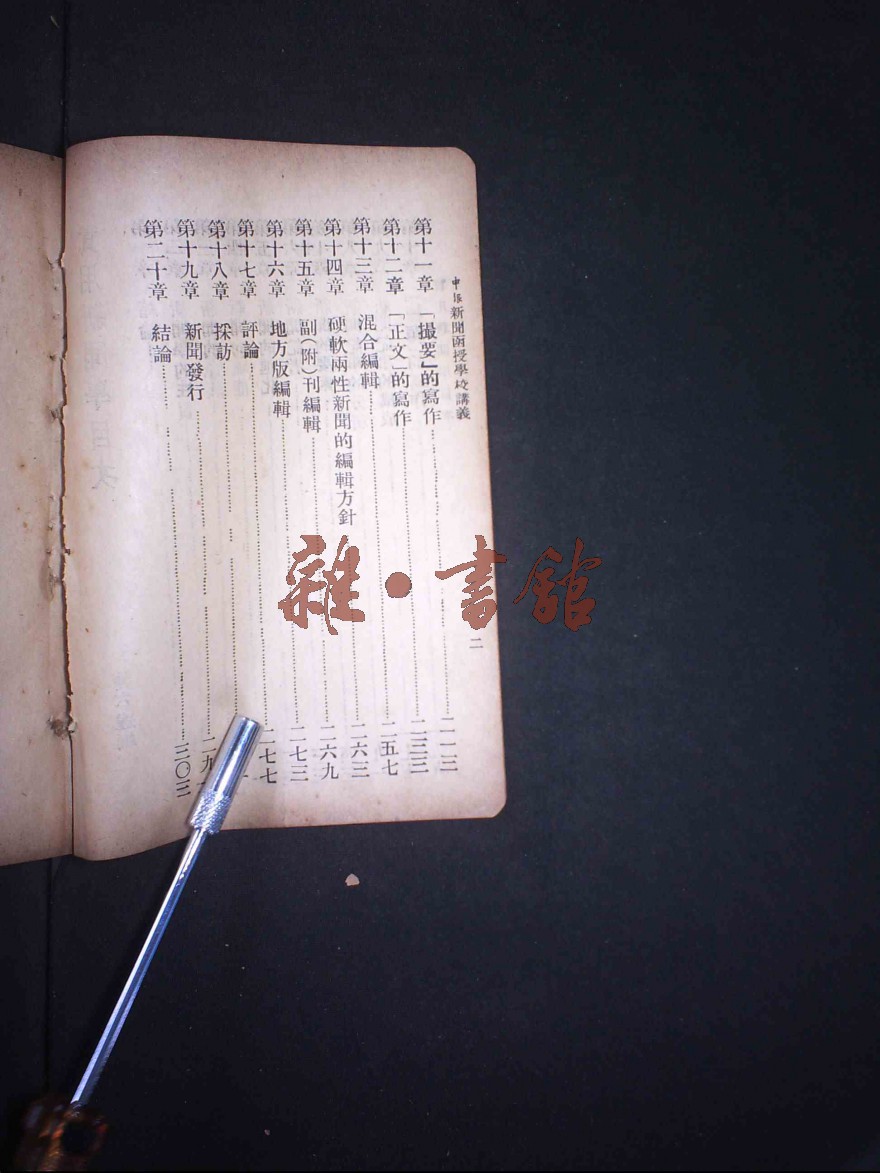 申報新聞函授學校講義
二
第十一章 「撮要」的寫作……二一三
第十二章 「正文」的寫作……二三三
第十三章 混合編輯……二五七
第十四章 硬軟兩性新聞的編輯方針……二六三
第十五章 副(附)刊編輯……二六九
第十六章 地方版編輯……二七三
第十七章 評論……二七七
第十八章 採訪……
第十九章 新聞發行……二九
第二十章 結論……三〇三
雜·書館